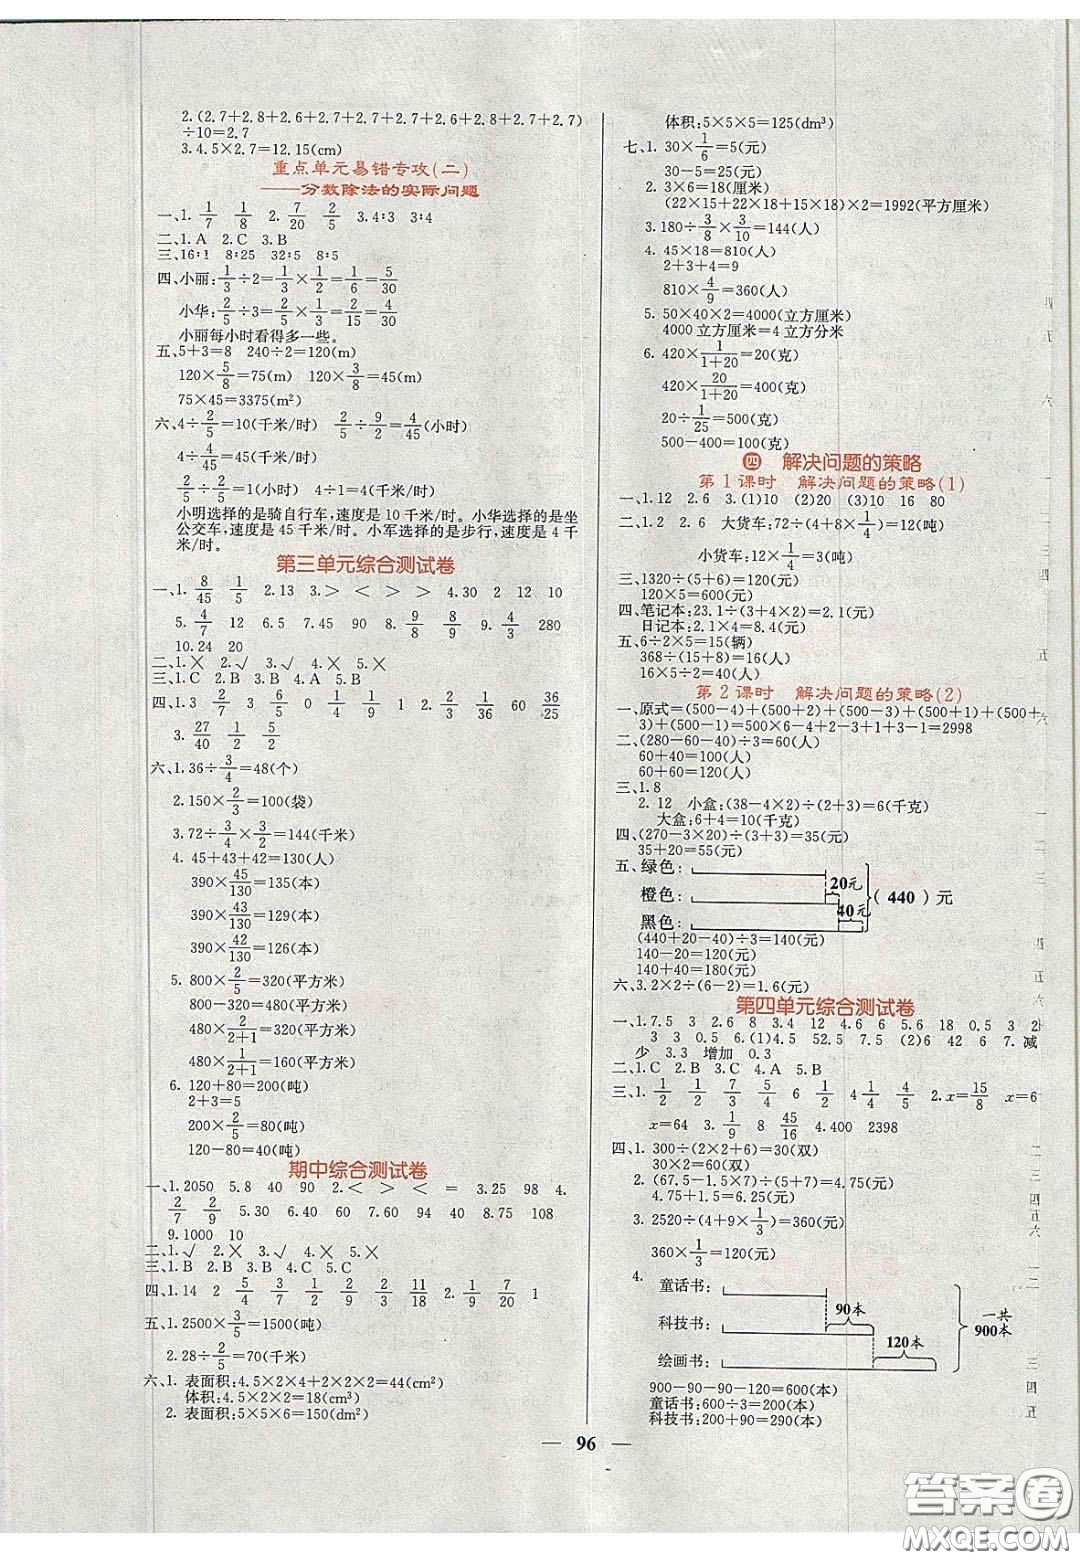 2. (2.7+2.8+2.6+2.7+2.7+2.7+2.6+2.8+2.7+2.7)
÷10=2.7
3. 4.5×2.7=12.15(cm)
重点单元易错专攻(二)
——分数除法的实际问题
一、1. 1/7 1/8 2. 7/20 2/5 3. 4∶3 3∶4
二、1. A 2. C 3. B
三、16∶1 8∶25 32∶5 8∶5
四、小丽:1/3÷2=1/3×1/2=1/6=5/30
小华:2/5÷3=2/5×1/3=2/15=4/30
小丽每小时看得多一些。
五、5+3=8 240÷2=120(m)
120×5/8=75(m) 120×3/8=45(m)
75×45=3375(m²)
六、4÷2/5=10(千米/时) 2/5÷9/2=4/45(小时)
4÷4/45=45(千米/时)
2/5÷2/5=1(小时) 4÷1=4(千米/时)
小明选择的是骑自行车,速度是 10 千米/时。小华选择的是坐
公交车,速度是 45 千米/时。小军选择的是步行,速度是 4 千
米/时。
第三单元综合测试卷
一、1. 8/45 1/5 2. 13 3. > < > > 4. 30 2 12 10
5. 4/7 12 6. 5 7. 45 90 8. 9/8 8/9 9. 4/3 280
10. 24 20
二、1. × 2. √ 3. √ 4. × 5. ×
三、1. C 2. B 3. B 4. A 5. B
四、1. 3 2/7 3 6/5 0 1/4 4/9 1 2. 2/3 1/36 60 36/25
3. 27/40 1/2 5/2
六、1. 36÷3/4=48(个)
2. 150×2/3=100(袋)
3. 72÷3/4×3/2=144(千米)
4. 45+43+42=130(人)
390×45/130=135(本)
390×43/130=129(本)
390×42/130=126(本)
5. 800×2/5=320(平方米)
800-320=480(平方米)
480×2/2+1=320(平方米)
480×1/2+1=160(平方米)
6. 120+80=200(吨)
2+3=5
200×2/5=80(吨)
120-80=40(吨)
期中综合测试卷
一、1. 2050 5.8 40 90 2. < > < = 3. 25 98 4.
2/7 2/9 5. 30 6. 40 60 7. 94 40 8. 75 108
9. 1000 10
二、1. √ 2. × 3. √ 4. × 5. ×
三、1. B 2. B 3. B 4. B 5. C
四、1. 14 2 5/4 3/7 3/5 2/3 11/18 2. 1/9 7/20 1
五、1. 2500×3/5=1500(吨)
2. 28÷2/5=70(千米)
六、1. 表面积:4.5×2×4+2×2×2=44(cm²)
体积:4.5×2×2=18(cm³)
2. 表面积:5×5×6=150(dm²)
体积:5×5×5=125(dm³)
七、1. 30×1/6=5(元)
30-5=25(元)
2. 3×6=18(厘米)
(22×15+22×18+15×18)×2=1992(平方厘米)
3. 180÷3/8×3/10=144(人)
4. 45×18=810(人)
2+3+4=9
810×4/9=360(人)
5. 50×40×2=4000(立方厘米)
4000 立方厘米=4 立方分米
6. 420×1/1+20=20(克)
420×20/1+20=400(克)
20÷1/25=500(克)
500-400=100(克)
四 解决问题的策略
第 1 课时 解决问题的策略(1)
一、1. 12 2. 6 3. (1)10 (2)20 (3)10 16 80
二、1. 2 2. 6 大货车:72÷(4+8×1/4)=12(吨)
小货车:12×1/4=3(吨)
三、1320÷(5+6)=120(元)
120×5=600(元)
四、笔记本:23.1÷(3+4×2)=2.1(元)
日记本:2.1×4=8.4(元)
五、6÷2×5=15(辆)
368÷(15+8)=16(人)
16×5÷2=40(人)
第 2 课时 解决问题的策略(2)
一、原式=(500-4)+(500+2)+(500-3)+(500+1)+(500+
3)+(500-1)=500×6-4+2-3+1+3-1=2998
二、(280-60-40)÷3=60(人)
60+40=100(人)
60+60=120(人)
三、1. 8
2. 12 小盒:(38-4×2)÷(2+3)=6(千克)
大盒:6+4=10(千克)
四、(270-3×20)÷(3+3)=35(元)
35+20=55(元)
五、绿色:
20元
橙色:
(440)元
40元
黑色:
(440+20-40)÷3=140(元)
140-20=120(元)
140+40=180(元)
六、3.2×2÷(6-2)=1.6(元)
第四单元综合测试卷
一、1. 7.5 3 2. 6 8 3. 4 12 4. 6 6 5. 6 18 0.5 3 2
3 3 0.5 6. (1)4.5 52.5 7.5 (2)6 42 6 7. 减
少 3.3 增加 0.3
二、1. C 2. B 3. C 4. A 5. B
三、1. 1/2 1/2 7/3 5/4 6 1/2 4 1/4 4/5 2. x=15/8 x=6
x=64 3. 1/9 8 45/16 4. 400 2398
四、1. 300÷(2×2+6)=30(双)
30×2=60(双)
2. (67.5-1.5×7)÷(5+7)=4.75(元)
4.75+1.5=6.25(元)
3. 2520÷(4+9×1/3)=360(元)
360×1/3=120(元)
4.
童话书:
90本
科技书:
一共
900本
120本
绘画书:
900-90-90-120=600(本)
童话书:600÷3=200(本)
科技书:200+90=290(本)
96
答案卷
MXQE.COM